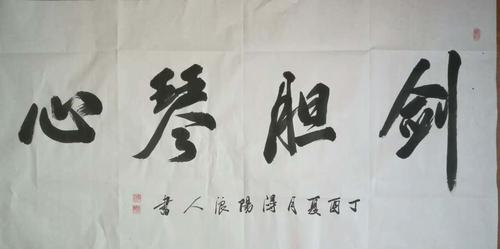 剑胆琴心
丁酉夏月浔阳浪人书